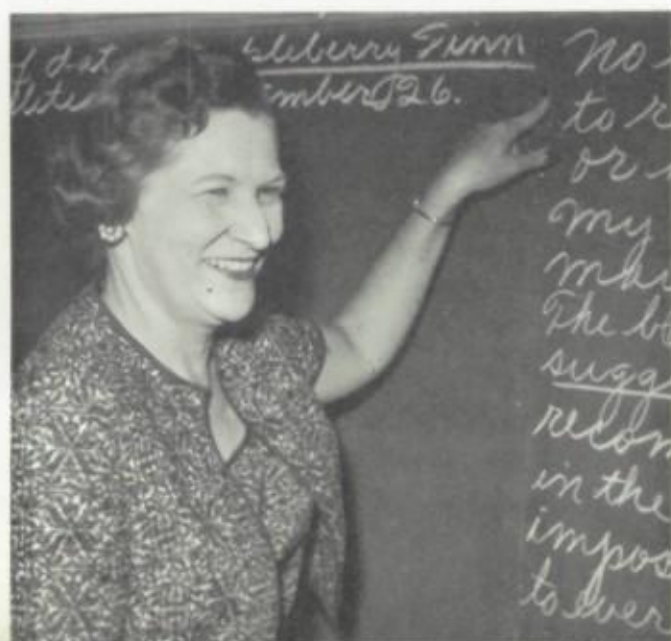 leberry Finn
mber 26.
No
to
or
my
The
sugg
recom
in the
impos
to ever